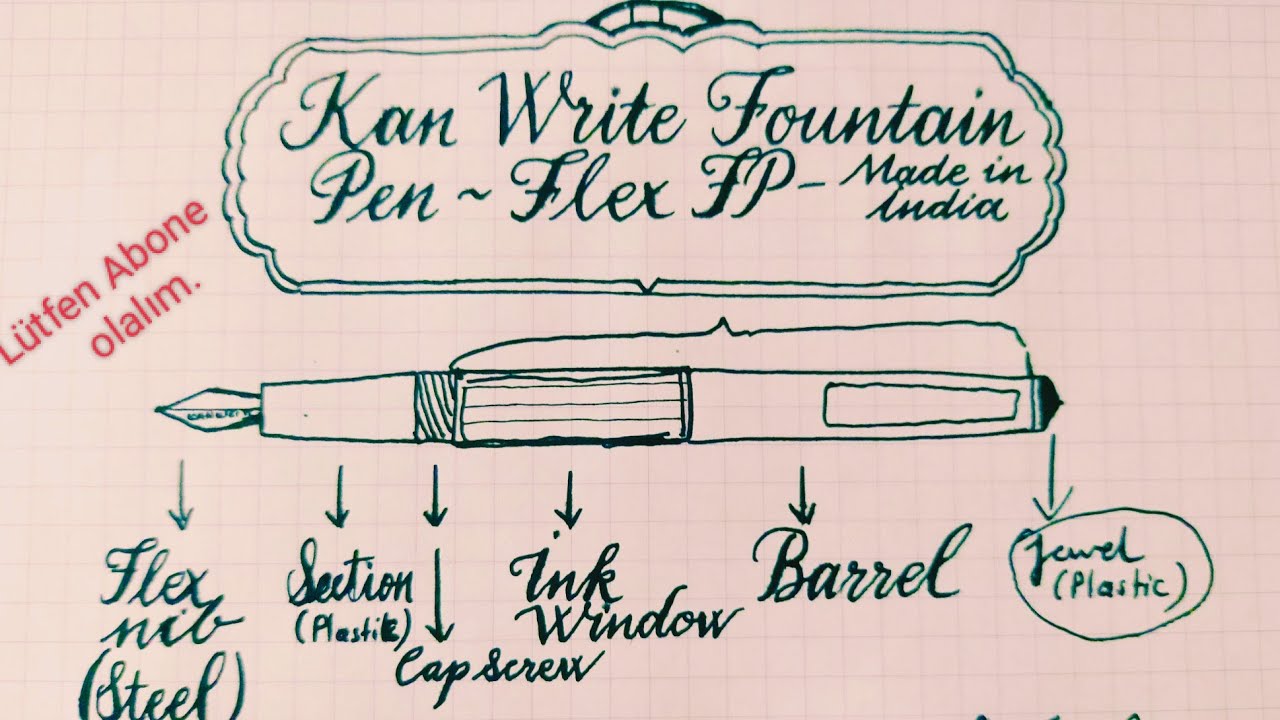 Kan Write Fountain
Pen ~ Flex FP - Made in
India
Lütfen Abone
olalım.
KANWRITE
Flex
nib
(Steel)
Section
(Plastik)
Cap screw
Ink
Window
Barrel
Jewel
(Plastic)